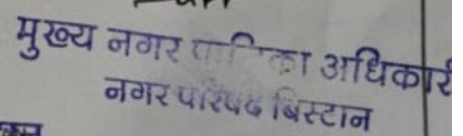 मुख्य नगर पालिका अधिकारी
नगर परिषद बिस्टान